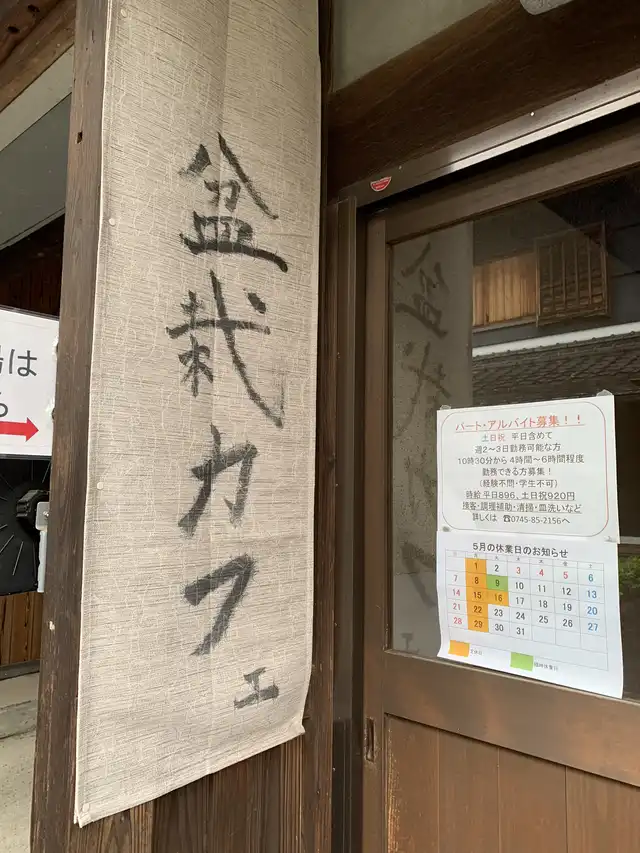 盆栽カフェ
は
パート・アルバイト募集！！
土日祝 平日含めて
週2～3日勤務可能な方
10時30分から4時間～6時間程度
勤務できる方募集！
(経験不問・学生不可)
時給 平日896、土日祝920円
接客・調理補助・清掃・皿洗いなど
詳しくは ☎0745-85-2156へ
5月の休業日のお知らせ
日 月 火 水 木 金 土
1 2 3 4 5 6
7 8 9 10 11 12 13
14 15 16 17 18 19 20
21 22 23 24 25 26 27
28 29 30 31
定休日 臨時休業日